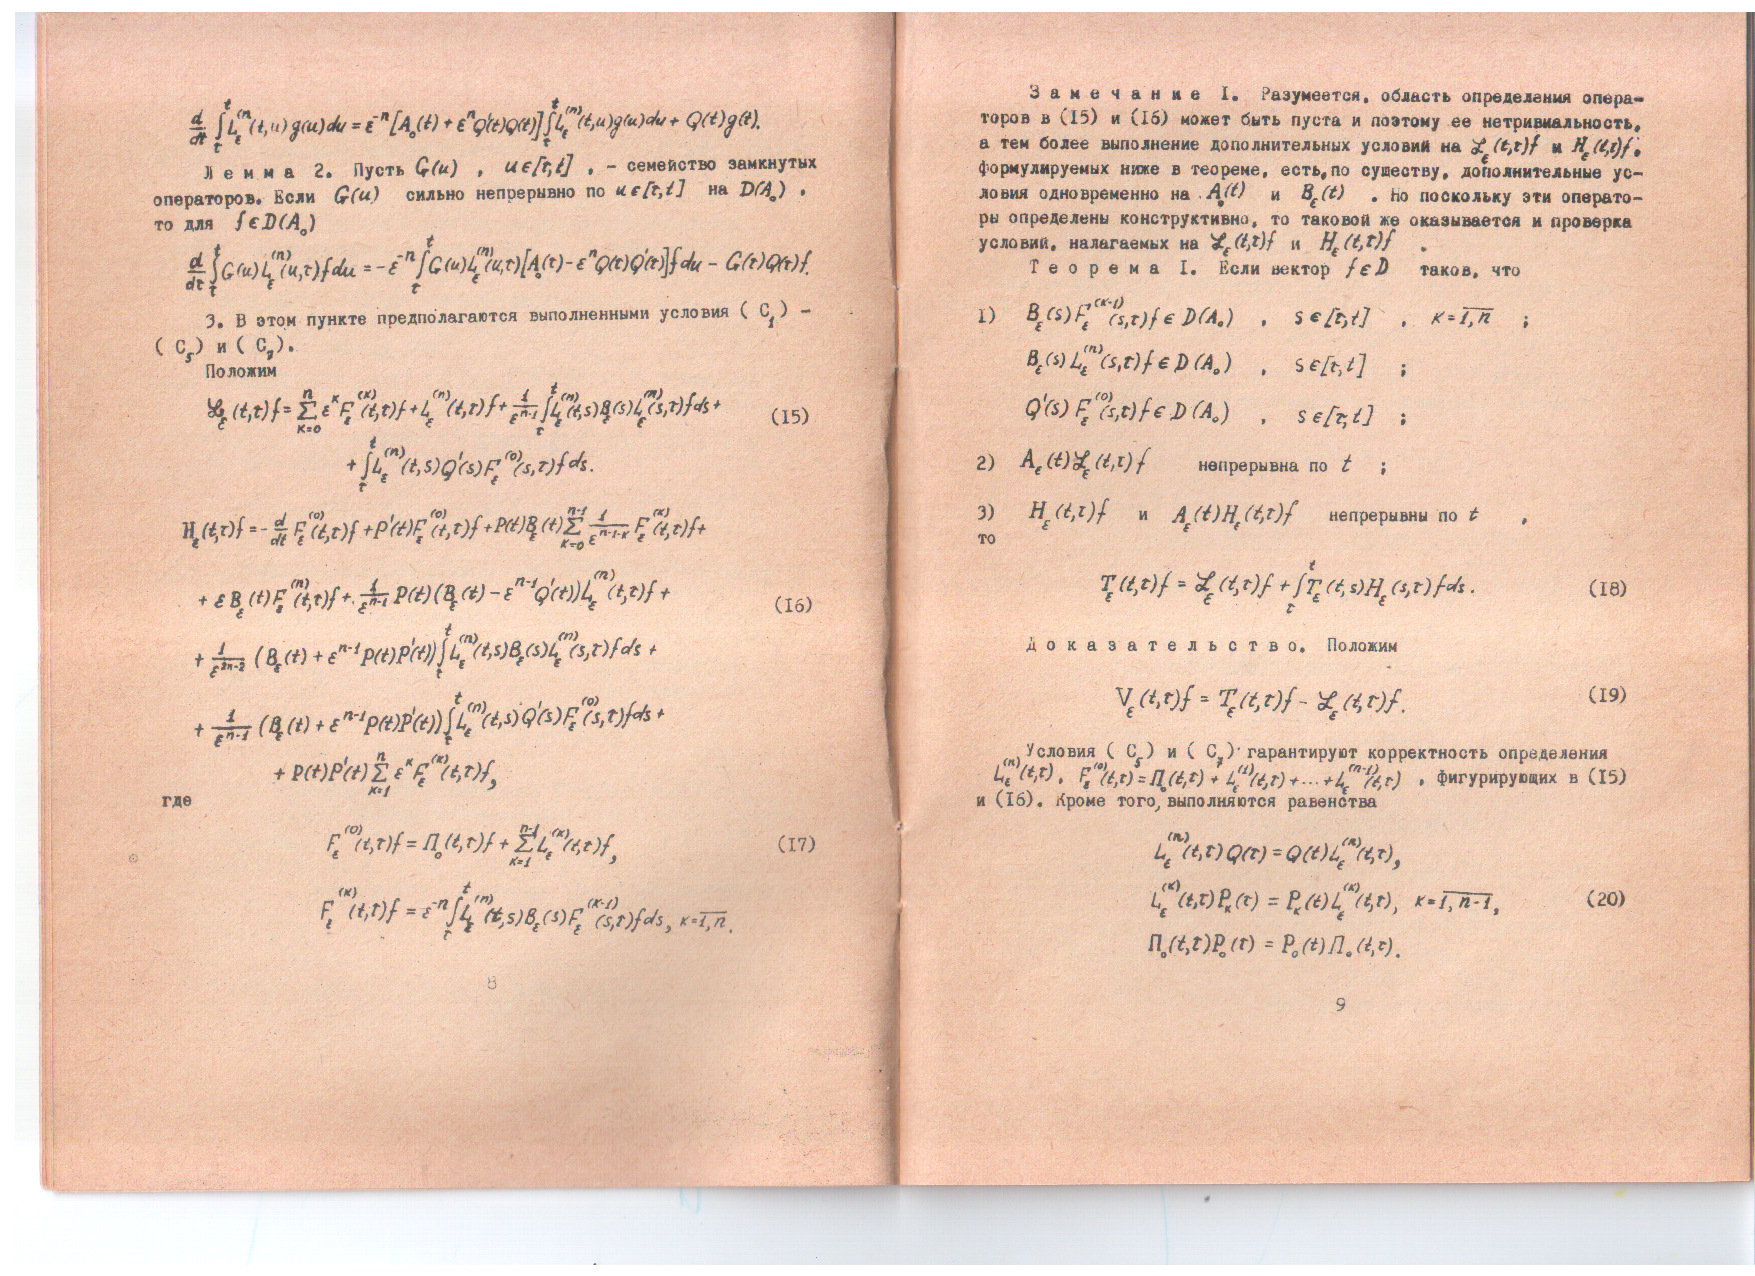 d/dt ∫_τ^t L_ε^(n)(t,u)g(u)du = ε^{-n}[A_0(t) + ε^n Q'(t)Q(t)] ∫_τ^t L_ε^(n)(t,u)g(u)du + Q(t)g(t).
Лемма 2. Пусть G(u) , u ∈ [τ,t] , – семейство замкнутых
операторов. Если G(u) сильно непрерывно по u ∈ [τ,t] на D(A_0) ,
то для f ∈ D(A_0)
d/dτ ∫_τ^t G(u)L_ε^(n)(u,τ)f du = -ε^{-n} ∫_τ^t G(u)L_ε^(n)(u,τ)[A_0(τ) - ε^n Q(τ)Q'(τ)]f du - G(τ)Q(τ)f.
3. В этом пункте предполагаются выполненными условия ( C_1) –
( C_5) и ( C_7).
Положим
ℒ_ε(t,τ)f = Σ_{κ=0}^n ε^κ F_ε^(κ)(t,τ)f + L_ε^(n)(t,τ)f + 1/ε^{n-1} ∫_τ^t L_ε^(n)(t,s)B_ε(s)L_ε^(n)(s,τ)f ds + (I5)
+ ∫_τ^t L_ε^(n)(t,s)Q'(s)F_ε^(0)(s,τ)f ds.
H_ε(t,τ)f = - d/dt F_ε^(0)(t,τ)f + P'(t)F_ε^(0)(t,τ)f + P(t)B_ε(t) Σ_{κ=0}^{n-1} 1/ε^{n-1-κ} F_ε^(κ)(t,τ)f +
+ εB_ε(t)F_ε^(n)(t,τ)f + 1/ε^{n-1} P(t)(B_ε(t) - ε^{n-1}Q'(t))L_ε^(n)(t,τ)f + (I6)
+ 1/ε^{2n-2} (B_ε(t) + ε^{n-1}P(t)P'(t)) ∫_τ^t L_ε^(n)(t,s)B_ε(s)L_ε^(n)(s,τ)f ds +
+ 1/ε^{n-1} (B_ε(t) + ε^{n-1}P(t)P'(t)) ∫_τ^t L_ε^(n)(t,s)Q'(s)F_ε^(0)(s,τ)f ds +
+ P(t)P'(t) Σ_{κ=1}^n ε^κ F_ε^(κ)(t,τ)f,
где
F_ε^(0)(t,τ)f = Π_0(t,τ)f + Σ_{κ=1}^{n-1} L_ε^(κ)(t,τ)f, (I7)
F_ε^(κ)(t,τ)f = ε^{-n} ∫_τ^t L_ε^(n)(t,s)B_ε(s)F_ε^(κ-1)(s,τ)f ds, κ = \overline{1,n}.
8
Замечание I. Разумеется, область определения опера-
торов в (I5) и (I6) может быть пуста и поэтому ее нетривиальность,
а тем более выполнение дополнительных условий на ℒ_ε(t,τ)f и H_ε(t,τ)f,
формулируемых ниже в теореме, есть, по существу, дополнительные ус-
ловия одновременно на A_0(t) и B_ε(t) . Но поскольку эти операто-
ры определены конструктивно, то таковой же оказывается и проверка
условий, налагаемых на ℒ_ε(t,τ)f и H_ε(t,τ)f .
Теорема I. Если вектор f ∈ D таков, что
1) B_ε(s)F_ε^(κ-1)(s,τ)f ∈ D(A_0) , s ∈ [τ,t] , κ = \overline{1,n} ;
B_ε(s)L_ε^(n)(s,τ)f ∈ D(A_0) , s ∈ [τ,t] ;
Q'(s)F_ε^(0)(s,τ)f ∈ D(A_0) , s ∈ [τ,t] ;
2) A_ε(t)ℒ_ε(t,τ)f непрерывна по t ;
3) H_ε(t,τ)f и A_ε(t)H_ε(t,τ)f непрерывны по t ,
то
T_ε(t,τ)f = ℒ_ε(t,τ)f + ∫_τ^t T_ε(t,s)H_ε(s,τ)f ds. (I8)
Доказательство. Положим
V_ε(t,τ)f = T_ε(t,τ)f - ℒ_ε(t,τ)f. (I9)
Условия ( C_5) и ( C_7) гарантируют корректность определения
L_ε^(n)(t,τ), F_ε^(0)(t,τ) = Π_0(t,τ) + L_ε^(1)(t,τ) + ... + L_ε^(n-1)(t,τ) , фигурирующих в (I5)
и (I6). Кроме того, выполняются равенства
L_ε^(n)(t,τ)Q(τ) = Q(t)L_ε^(n)(t,τ),
L_ε^(κ)(t,τ)P_κ(τ) = P_κ(t)L_ε^(κ)(t,τ), κ = \overline{1,n-1}, (20)
Π_0(t,τ)P_0(τ) = P_0(t)Π_0(t,τ).
9